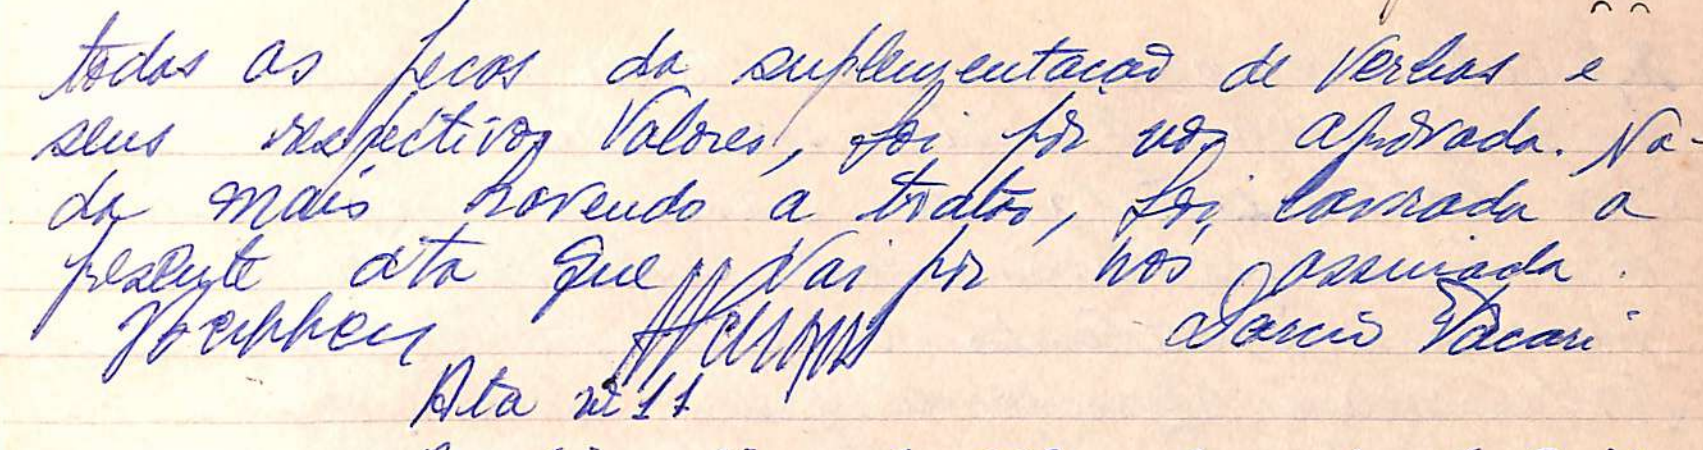 todas as pecas da suplementação de Verbas e
seus respectivos Valores, foi por nos aprovada. Na-
da mais havendo a tratar, foi lavrada a
presente ata que Vai por nós assinada.
Darcio Vacari
Ata nº 11